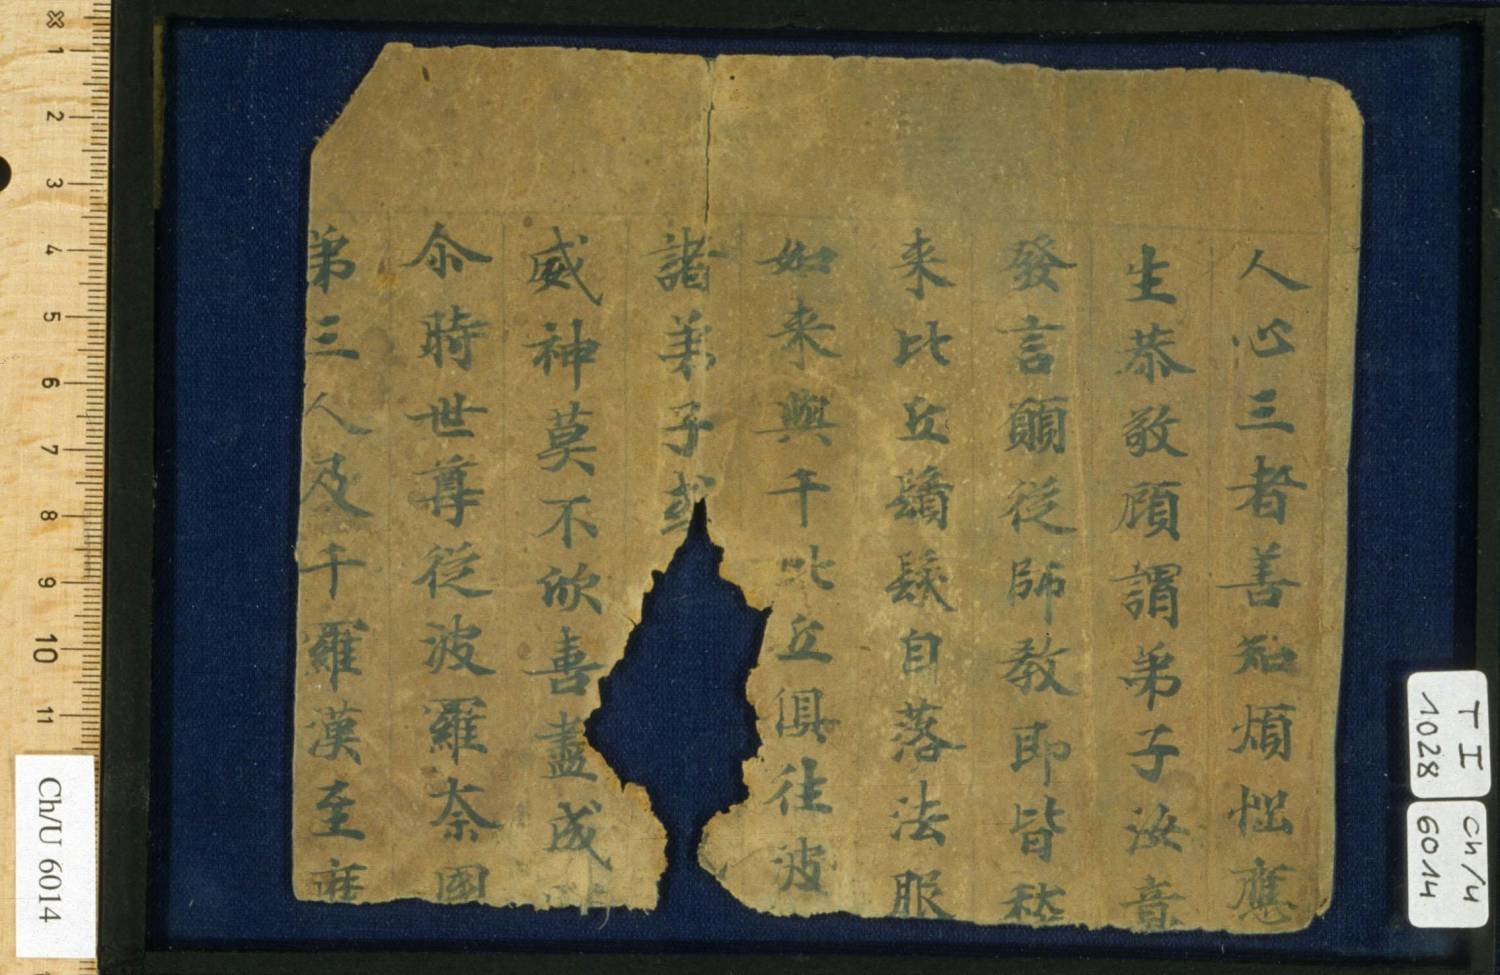 人心三者善知煩惱應
生恭敬頋謂弟子汝意
發言願從師教即皆稽
来比丘鬚髮自落法服
如来與千比丘俱往波
諸弟子或
威神莫不欣喜盡成
尒時世尊從波羅奈國
弟三人及千羅漢至
Ch/U 6014
T I 1028
Ch/U 6014
1
2
3
4
5
6
7
8
9
10
11